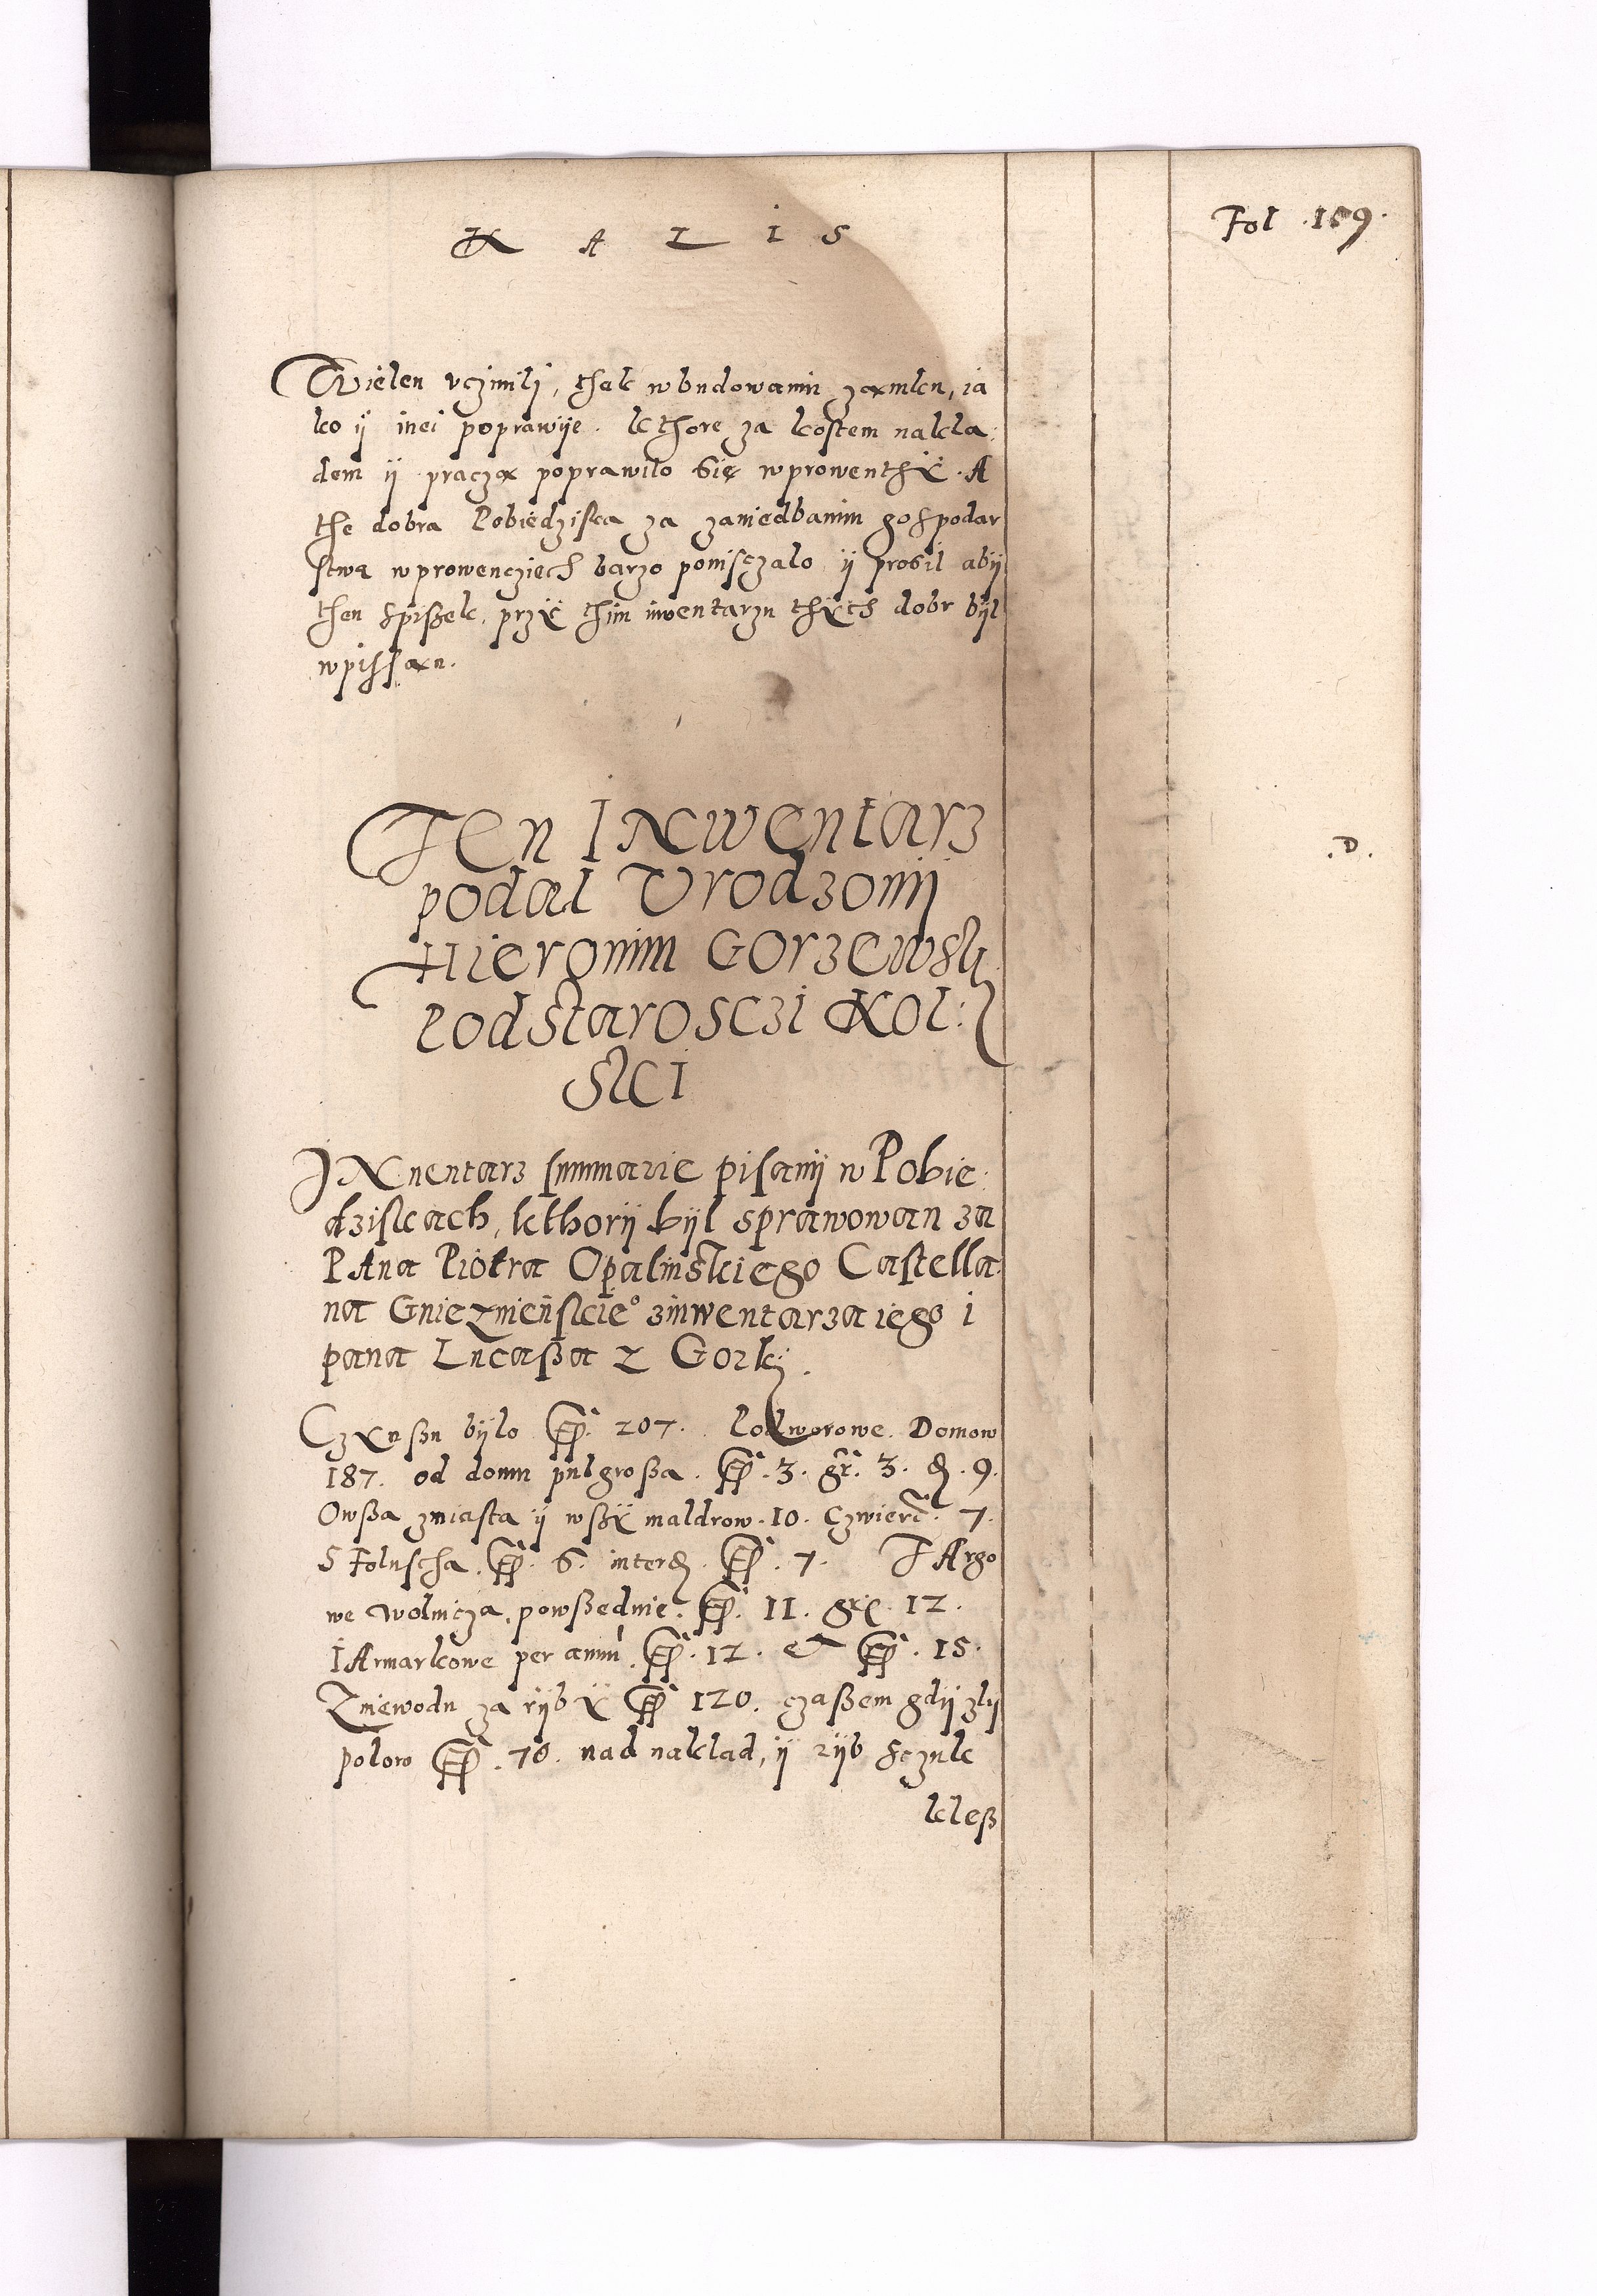 K A L I S
Fol .159.
Wielen vczinilj, thak w budowaniu zamku, ia
ko ÿ inei poprawije. kthore za kostem nakla:
dem ÿ praczą poprawilo się w prowenthÿ. A
the dobra Pobiedziska za zaniedbanim gospodar
stwa w prowencziech barzoponisczalo, ÿ prosil abÿ
then spiszek, przÿ thim inwentarzu thÿch dobr bÿl
wpissan.
TEn INwentarz
.D.
podal Vrodzonÿ
Hieronim Gorzewskj
Podstarosczi Kol:
ski
INuentarz summarie pisanÿ w Pobie:
dziskach, kthorÿ bÿl sprawowan za
PAna Piotra Opalinskiego Castella:
na Gnieznienskie° z inwentarza iego i
pana Lucasza z Gorkj.
Czÿnszu bÿlo 207. Podworowe. Domow
187. od domu pulgrosza. 3. gr. 3. 9.
Owsza z miasta ÿ wszÿ maldrow. 10. Czwierc. 7.
S Foluscha. 6. inter 7. TArgo
we wolnicza, powszednie. 11. gr. 12.
IArmarkowe per annu 12. et 15.
Z niewodu za rÿbÿ 120. czaszem gdÿ zlÿ
polow 70. nad naklad, ÿ rÿb sczuk
klesz